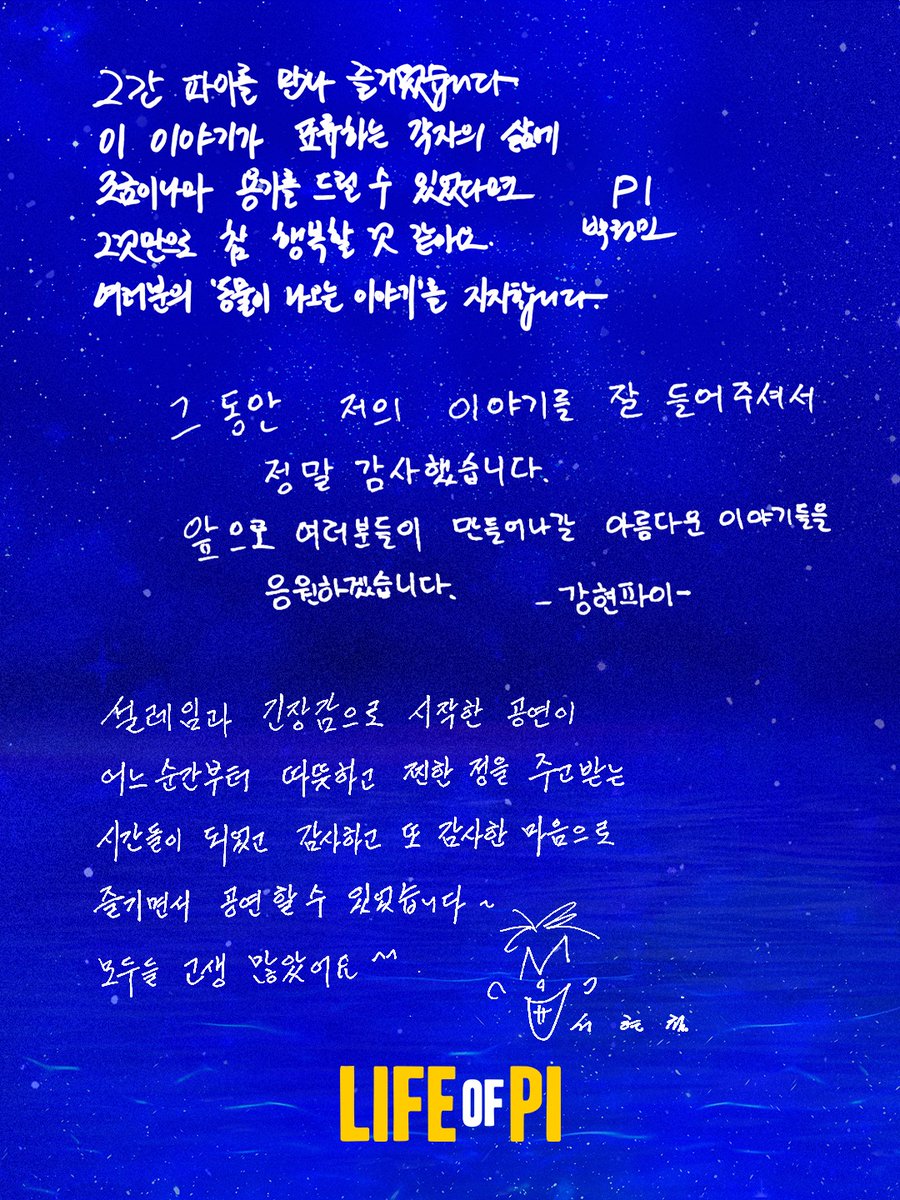 그간 파이를 만나 즐거웠습니다
이 이야기가 표류하는 각자의 삶에
조금이나마 용기를 드릴 수 있었다면
그것만으로 참 행복할 것 같아요.
여러분의 '동물이 나오는 이야기'를 지지합니다.
PI
박정민
그 동안 저의 이야기를 잘 들어주셔서
정말 감사했습니다.
앞으로 여러분들이 만들어나갈 아름다운 이야기들을
응원하겠습니다.
-강현파이-
설레임과 긴장감으로 시작한 공연이
어느 순간부터 따뜻하고 찐한 정을 주고받는
시간들이 되었고 감사하고 또 감사한 마음으로
즐기면서 공연할 수 있었습니다~
모두들 고생 많았어요^^
서현철
LIFE OF PI